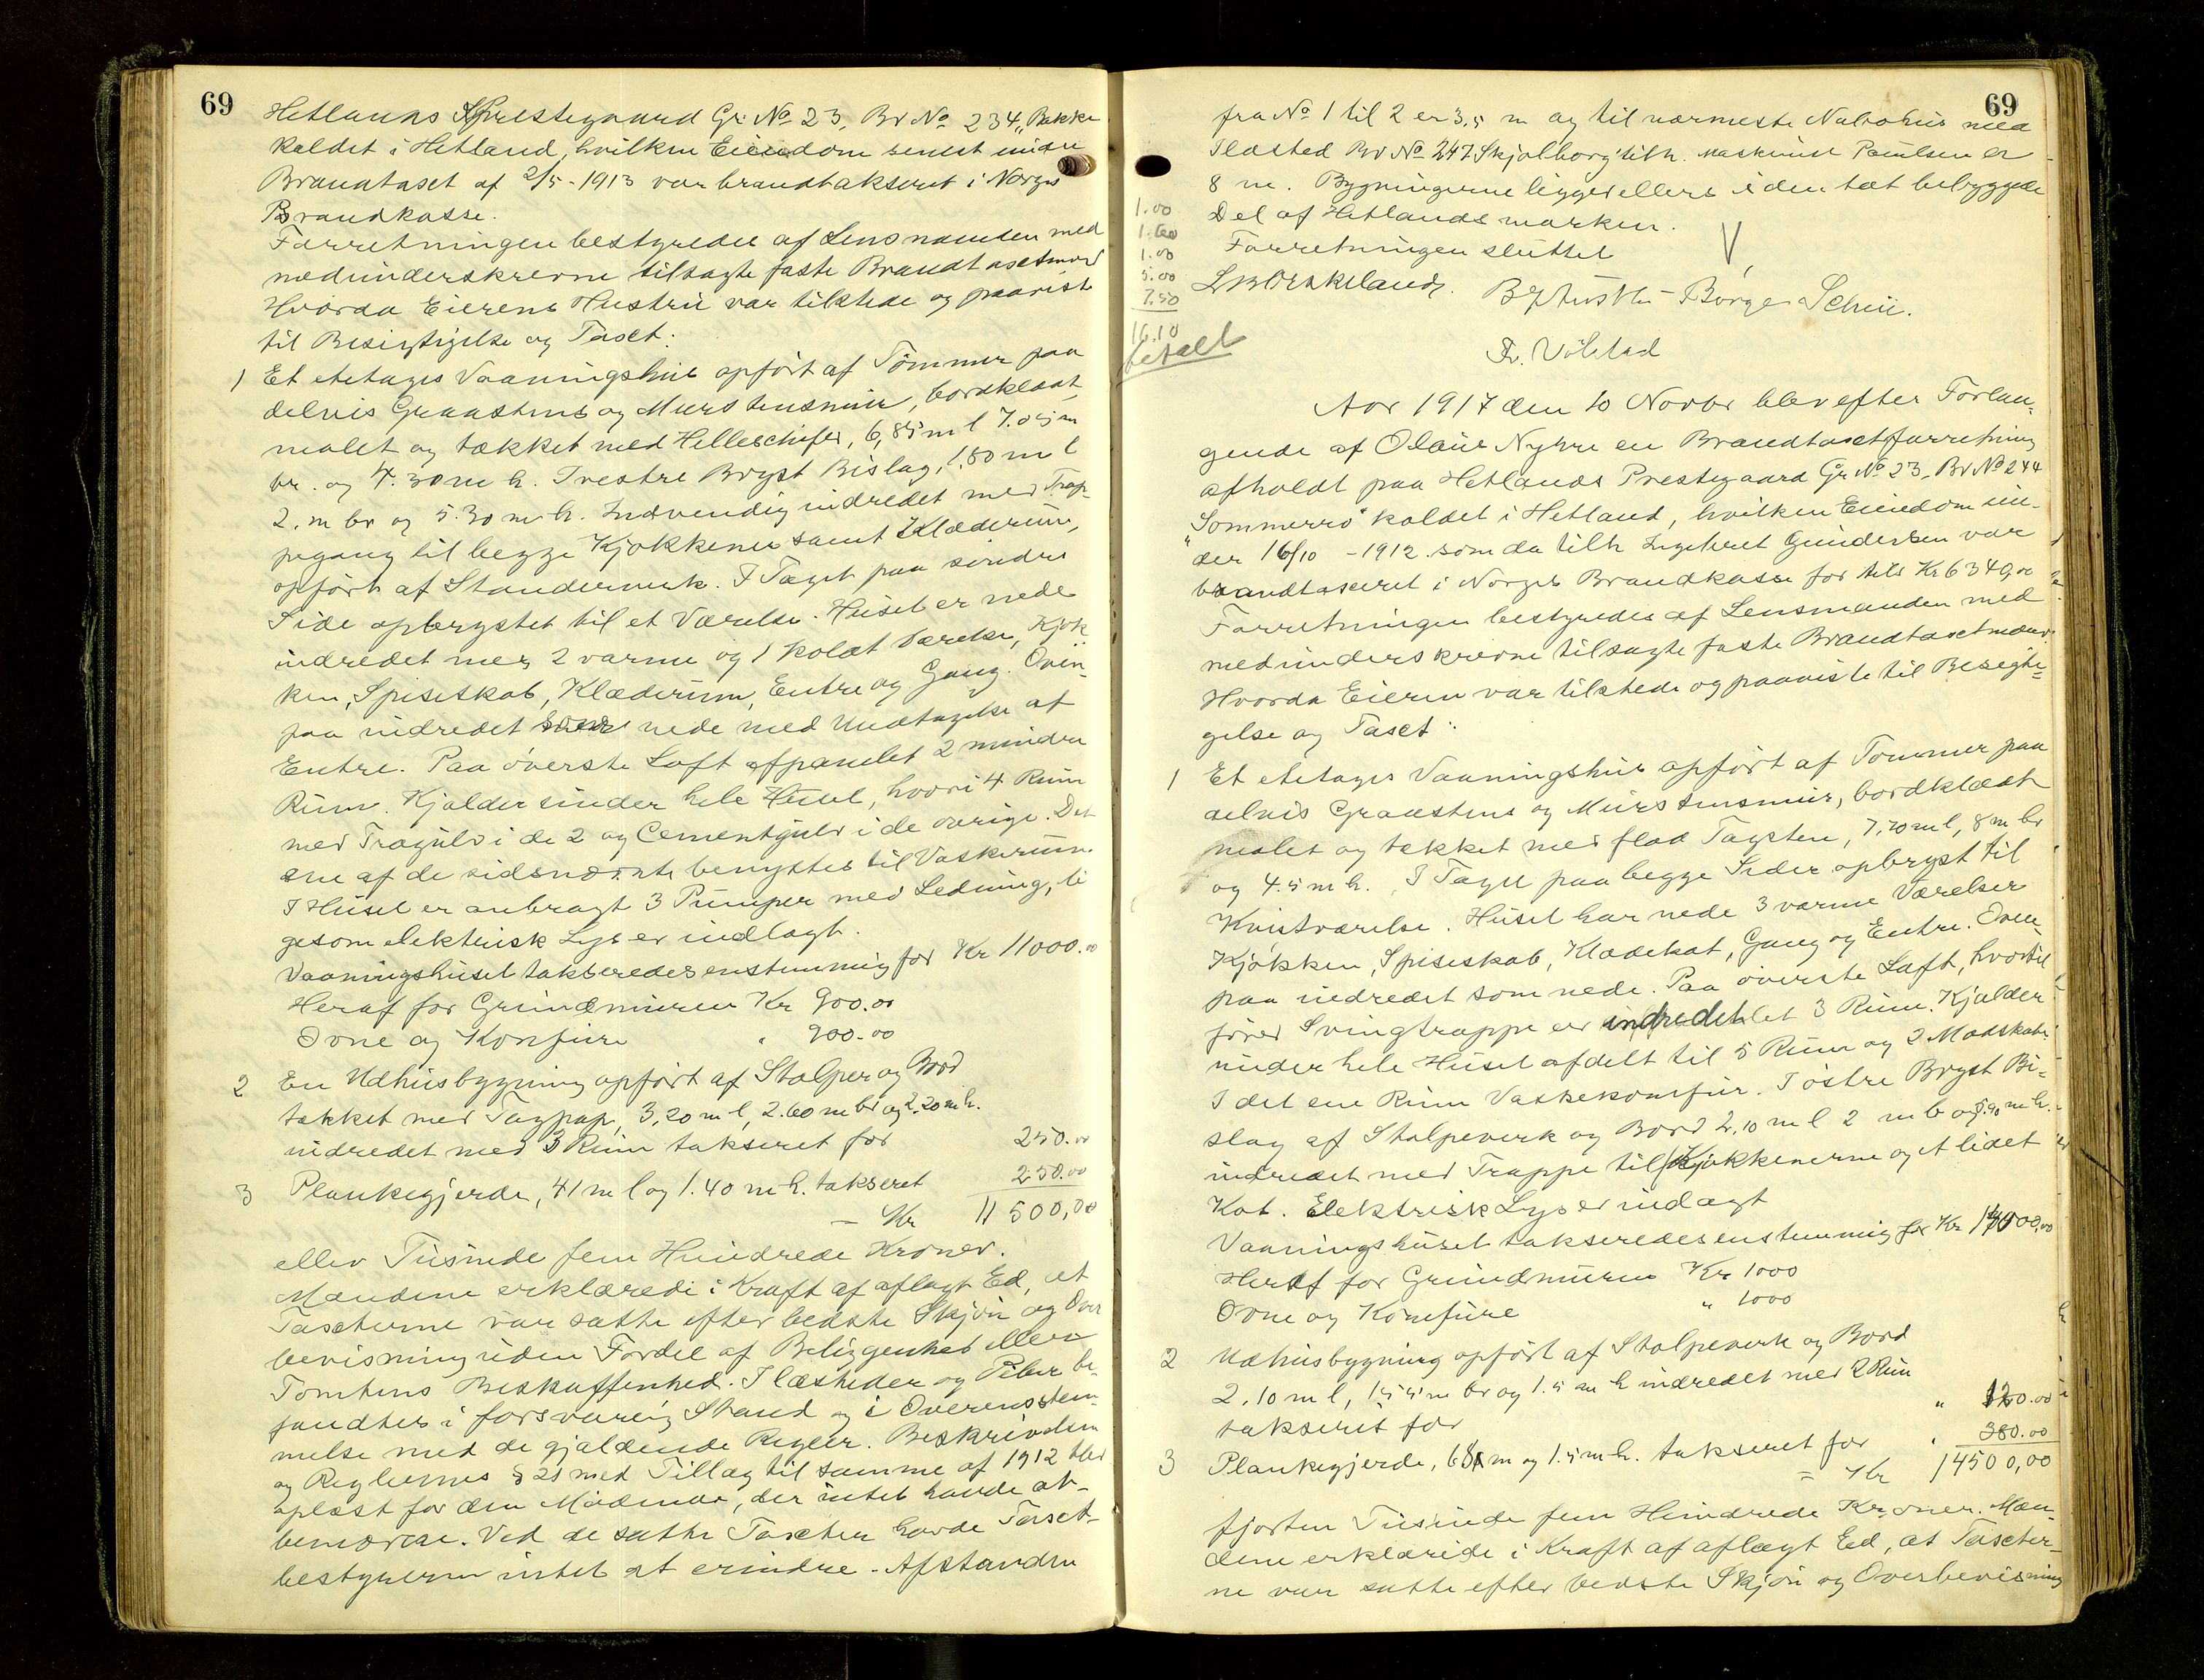 69
Hetlands Prestegaard Gr. No 23, Br No 234 „Bakke
kaldet i Hetland, hvilken Eiendom senest under
Brandtaxst af 2/5-1913 var brandtakseret i Norges
Brandkasse.
Forretningen bestyredes af Lensmanden med
medunderskrevne tilsagte faste Brandtaxtmænd
Hvorda Eierens Hustru var tilstede og paaviste
til Besigtigelse og Taxt:
1 Et etetages Vaaningshus opført af Tømmer paa
delvis Graastens og Murstensmur, bordklædt,
malet og tækket med Helleskifer, 6,85 m l 7.05 m
br. og 4.30 m h. I vestre Bryst Bislag, 1.80 m l
2. m br og 5.30 m h. Indvendig indredet med Trap-
pegang til begge Kjøkkener samt Klæderum,
opført af Standerverk. I Taget paa søndre
Side opbrystet til et Værelse. Huset er nede
indredet med 2 varme og 1 koldt Værelse, Kjøk
ken, Spiseskab, Klæderum, Entre og Gang. Oven-
paa indredet som nede med Undtagelse af
Entre. Paa øverste Loft afpanelet 2 mindre
Rum. Kjælder under hele Huset, hvori 4 Rum
med Trægulv i de 2 og Cementgulv i de øvrige. Det
ene af de sidsnævnte benyttes til Vaskerum
I Huset er anbragt 3 Pumper med Ledning, li
gesom elektrisk Lys er indlagt.
Vaaningshuset takseredes enstemmig for Kr 11000.00
Heraf for Grundmuren Kr 900.00
Ovne og Komfure " 900.00
2 En Udhusbygning opført af Stolper og Bord
tækket med Tagpap, 3,20 m l, 2.60 m br og 2,20 m h.
indredet med 3 Rum takseret for 250.00
3 Plankegjerde, 41 m l og 1.40 m h. takseret 250.00
– Kr 11500,00
ellev Tusinde fem Hundrede Kroner.
Mændene erklærede i Kraft af aflagt Ed, at
Taxterne var satte efter bedste Skjøn og Over
bevisning uden Fordel af Beliggenhed eller
Tomtens Beskaffenhed. Ildsteder og Piber be-
fandtes i forsvarlig Stand og i Overensstem-
melse med de gjældende Regler. Beskrivelsen
og Reglernes § 21 med Tillæg til samme af 1912 blev
oplæst for den Mødende, der intet havde at
bemærke. Ved de satte Taxter havde Taxt-
bestyreren intet at erindre. Afstanden
69
fra No 1 til 2 er 3,5 m og til nærmeste Nabohus med
Ildsted Br No 247 Skjolborg tilh. Maskinist Paulsen er
8 m. Bygningerne ligger ellers i den tæt bebyggede
Del af Hetlandsmarken.
Forretningen sluttet
Børge Schiu.
Fr. Völstad
1.00
1.60
1.00
5.00
7.50
16.10
betalt
Aar 1917 den 10 Novbr blev efter Forlan-
gende af Olaus Nyhre en Brandtaxtforretning
afholdt paa Hetlands Prestegaard Gr. No 23, Br No 244
„Sommerro" kaldet i Hetland, hvilken Eiendom un-
der 16/10 - 1912 som da tilh Ingebret Gundersen var
brandtaxeret i Norges Brandkasse for tils Kr 6340,00
Forretningen bestyredes af Lensmanden med
medunderskrevne tilsagte faste Brandtaxtmænd.
Hvorda Eieren var tilstede og paaviste til Besigti-
gelse og Taxt:
1 Et etetages Vaaningshus opført af Tømmer paa
delvis Graastens og Murstensmur, bordklædt
malet og tækket med flad Tagsten, 7,70 m l, 8 m br
og 4.5 m h. I Taget paa begge Sider opbryst til
Kvistværelse. Huset har nede 3 varme Værelser
Kjøkken, Spiseskab, Klædekot, Gang og Entre. Oven-
paa indredet som nede. Paa øverste Loft, hvortil
fører Svingtrappe er indredet 3 Rum. Kjælder
under hele Huset afdelt til 5 Rum og 2 Madskabe.
I det ene Rum Vaskekomfur. I østre Bryst Bi-
slag af Stolpeverk og Bord 2.10 m l 2 m b og 5.90 m h.
indredet med Trappe til Kjøkkenerne og et lidet
Kot. Elektrisk Lys er indlagt
Vaaningshuset takseredes enstemmig for Kr 14000,00
Heraf for Grundmuren Kr 1000
Ovne og Komfure " 1000
2 Udhusbygning opført af Stolpeverk og Bord
2.10 m l, 1.55 m br og 1.5 m h indredet med 2 Rum
takseret for " 120.00
3 Plankegjerde, 61 m og 1.5 m h. takseret for " 380.00
= Kr 14500,00
fjorten Tusinde fem Hundrede Kroner. Mæn-
dene erklærede i Kraft af aflagt Ed, at Taxter-
ne var satte efter bedste Skjøn og Overbevisning